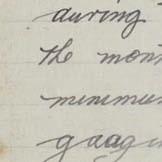 during
the mon
minimu
gaag